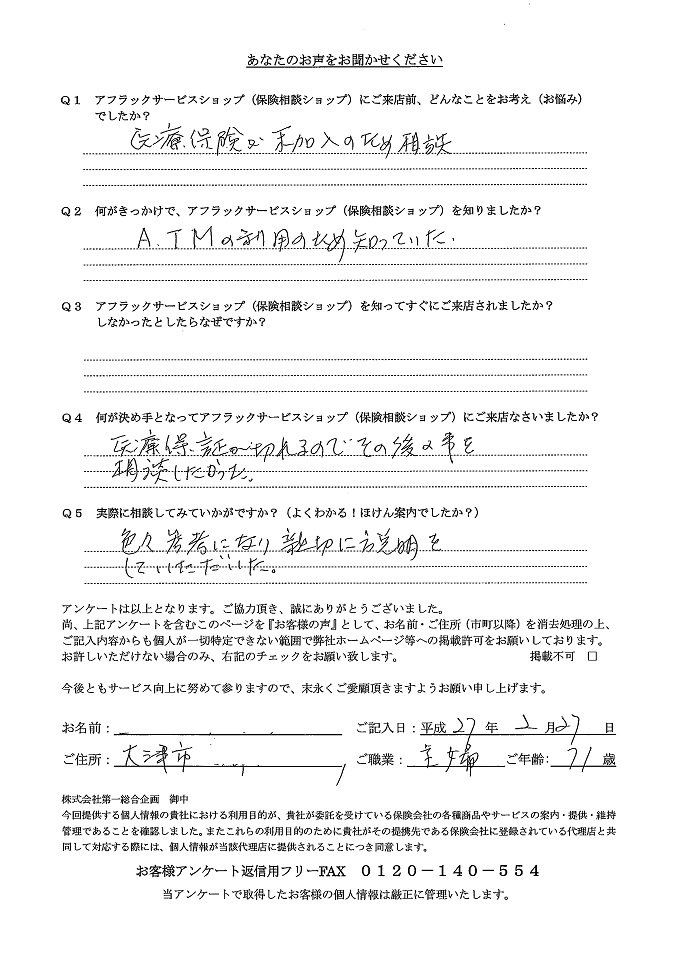 あなたのお声をお聞かせください
Q1 アフラックサービスショップ（保険相談ショップ）にご来店前、どんなことをお考え（お悩み）
でしたか？
医療保険が未加入のため相談
Q2 何がきっかけで、アフラックサービスショップ（保険相談ショップ）を知りましたか？
A.TMの利用のため知っていた.
Q3 アフラックサービスショップ（保険相談ショップ）を知ってすぐにご来店されましたか？
しなかったとしたらなぜですか？
Q4 何が決め手となってアフラックサービスショップ（保険相談ショップ）にご来店なさいましたか？
医療保証が切れるのでその後の事を
相談したかった。
Q5 実際に相談してみていかがですか？（よくわかる！ほけん案内でしたか？）
色々参考になり親切に説明を
していただいた。
アンケートは以上となります。ご協力頂き、誠にありがとうございました。
尚、上記アンケートを含むこのページを『お客様の声』として、お名前・ご住所（市町以降）を消去処理の上、
ご記入内容からも個人が一切特定できない範囲で弊社ホームページ等への掲載許可をお願いしております。
お許しいただけない場合のみ、右記のチェックをお願い致します。 掲載不可 □
今後ともサービス向上に努めて参りますので、末永くご愛顧頂きますようお願い申し上げます。
お名前： ご記入日：平成 27 年 2 月 27 日
ご住所： 大津市 ご職業： 主婦 ご年齢： 71 歳
株式会社第一総合企画 御中
今回提供する個人情報の貴社における利用目的が、貴社が委託を受けている保険会社の各種商品やサービスの案内・提供・維持
管理であることを確認しました。またこれらの利用目的のために貴社がその提携先である保険会社に登録されている代理店と共
同して対応する際には、個人情報が当該代理店に提供されることにつき同意します。
お客様アンケート返信用フリーFAX 0120－140－554
当アンケートで取得したお客様の個人情報は厳正に管理いたします。